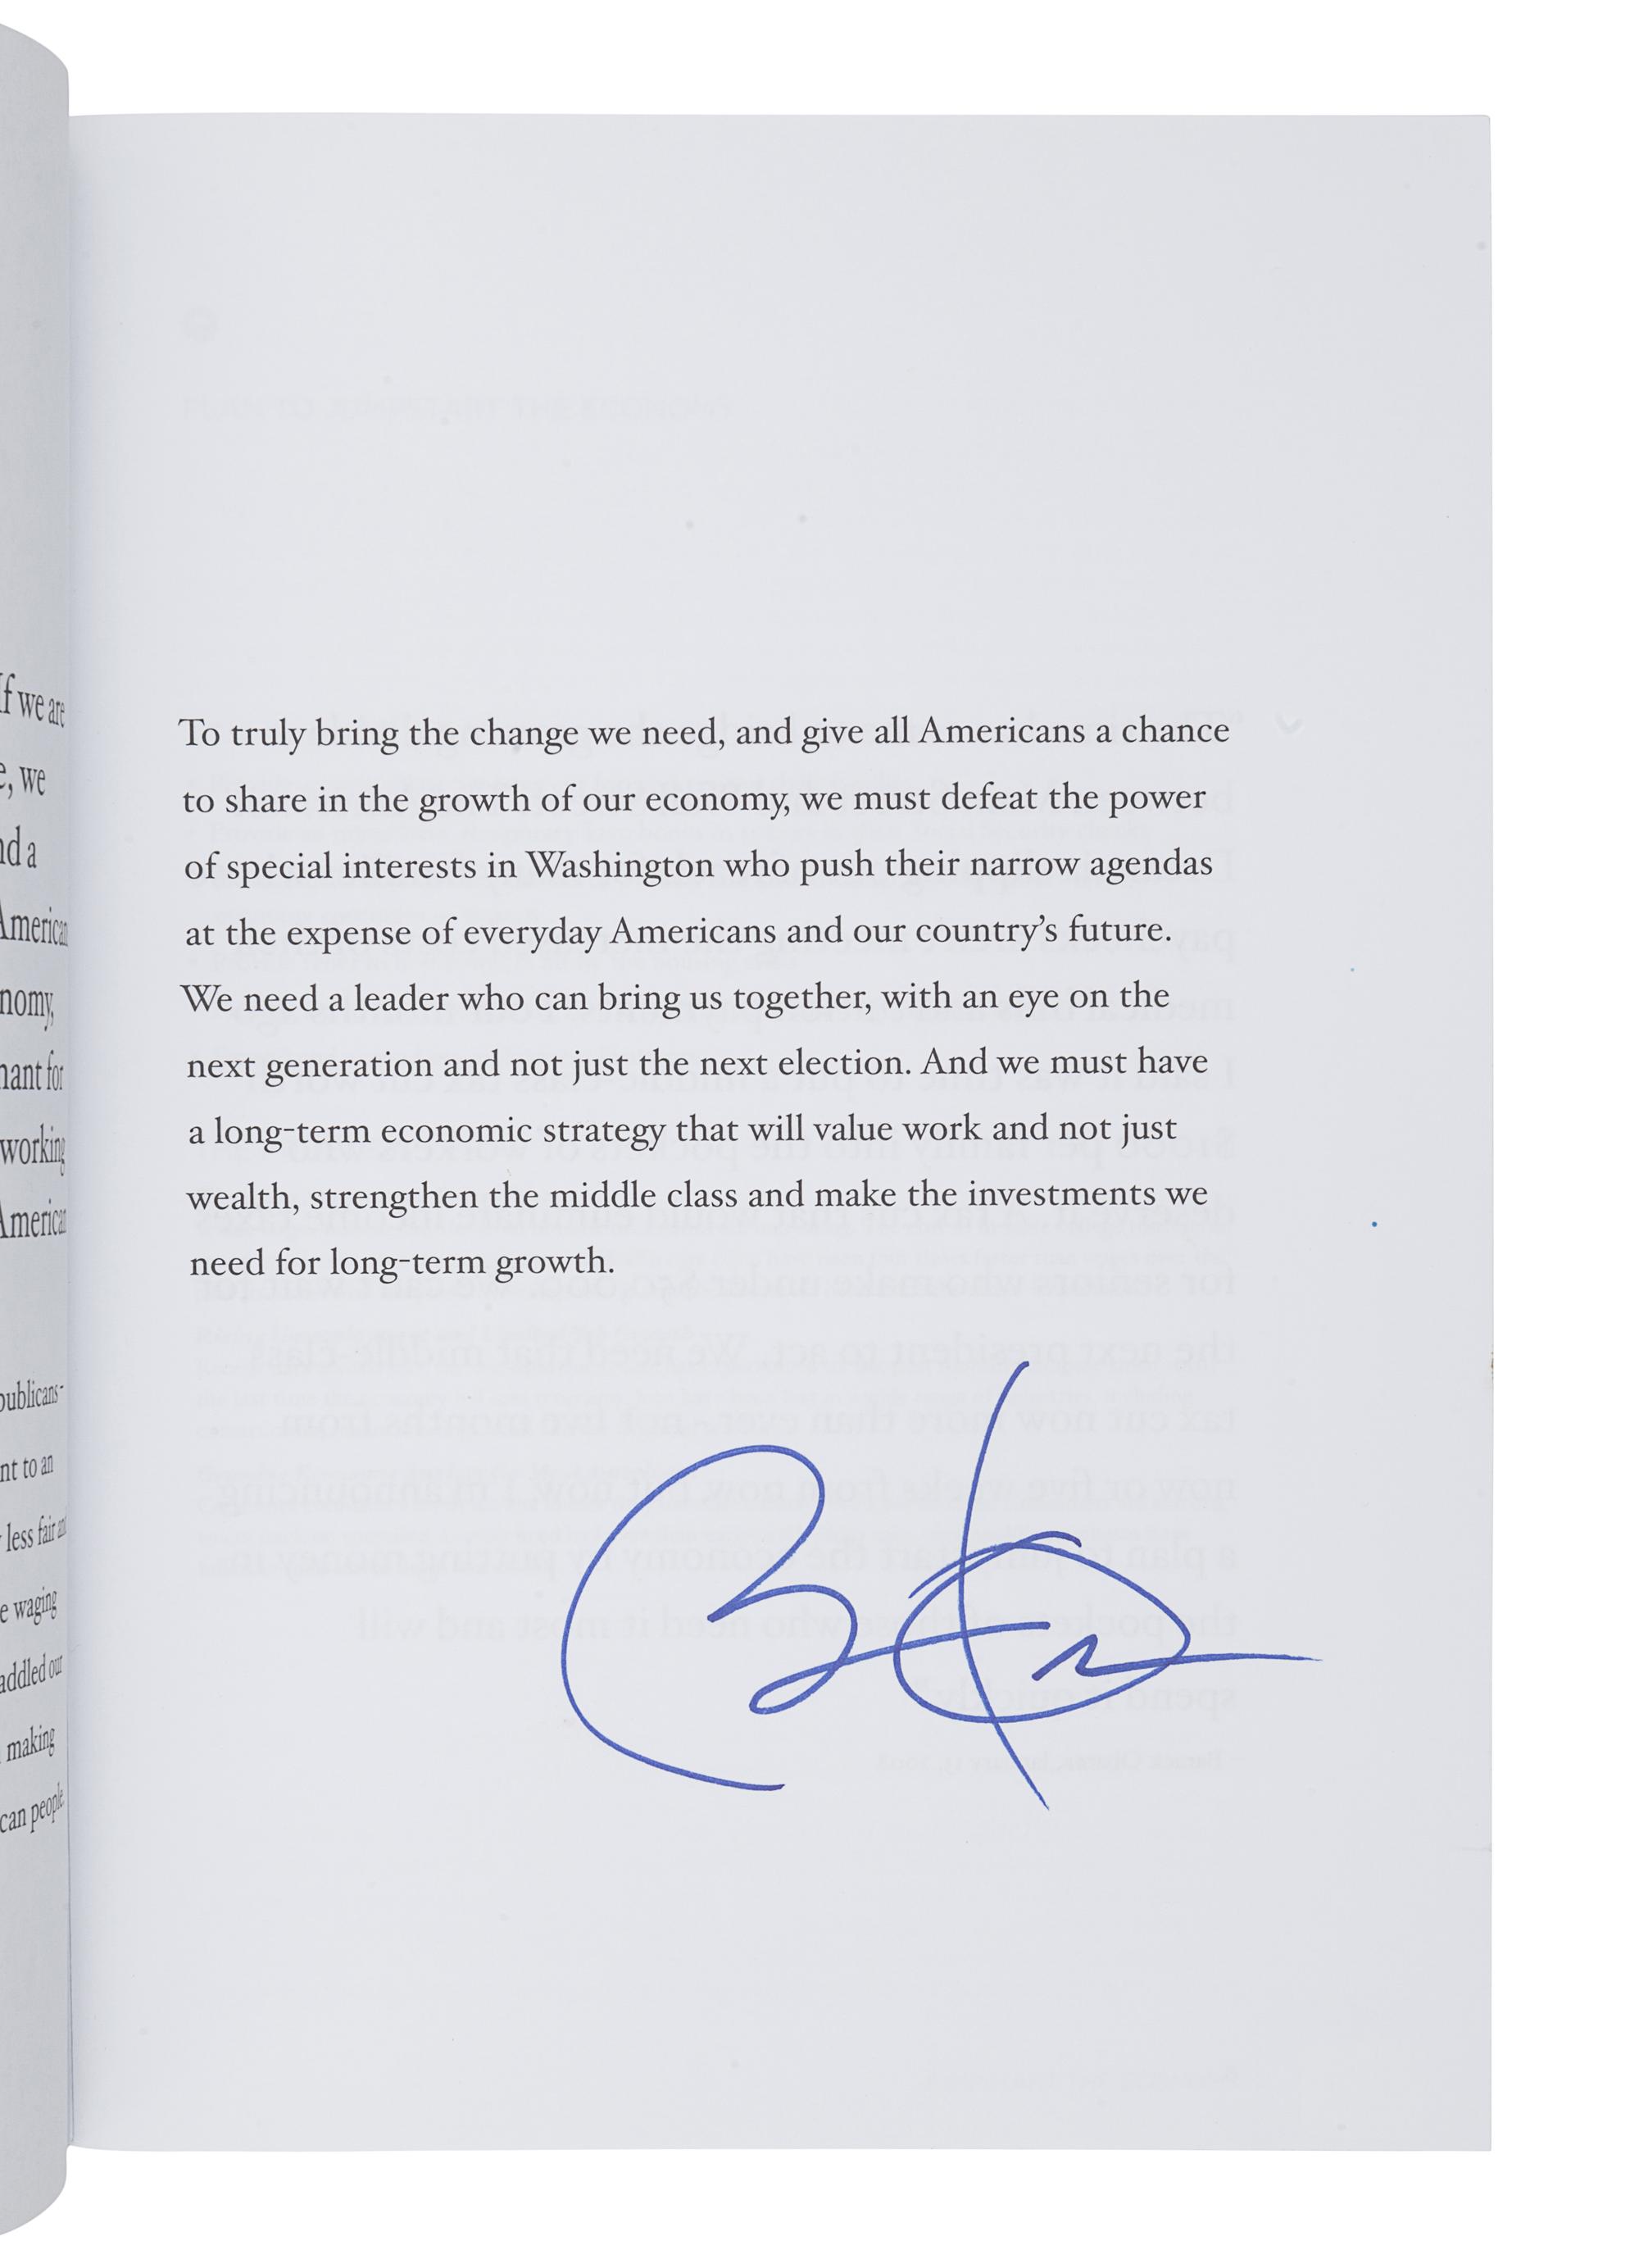 If we are
we
a
American
for
working
American
To truly bring the change we need, and give all Americans a chance
to share in the growth of our economy, we must defeat the power
of special interests in Washington who push their narrow agendas
at the expense of everyday Americans and our country’s future.
We need a leader who can bring us together, with an eye on the
next generation and not just the next election. And we must have
a long-term economic strategy that will value work and not just
wealth, strengthen the middle class and make the investments we
need for long-term growth.
to an
less fair
waging
our
making
people